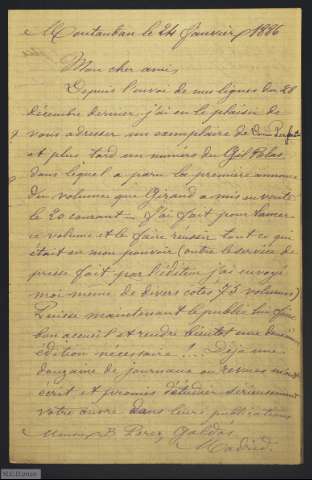 Montauban le 24 Janvier 1886
Mon cher ami,
Depuis l'envoi de mes lignes du 28
décembre dernier, j'ai eu le plaisir de
vous adresser un exemplaire de
et plus tard un numéro du Gil Blas
dans lequel a paru la première annonce
du volume que Giraud a mis en vente
le 20 courant. J'ai fait pour lancer
ce volume et le faire réussir tout ce qui
était en mon pouvoir (outre le service de
presse fait par l'éditeur j'ai envoyé
moi même de divers cotés 73 volumes)
Puisse maintenant le public lui faire
bon accueil et rendre bientot une
édition necessaire! Déjà une
douzaine de journaux ou revues m'ont
écrit et promis d'étudier sérieusement
votre œuvre dans leurs publications
B Perez Galdós
Madrid.